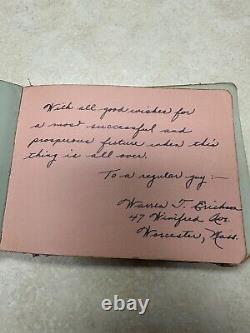 With all good wishes for
a most successful and
prosperous future when this
thing is all over.
To a regular guy :—
Warren T. Erickson
47 Winifred Ave.
Worcester, Mass.
ebay